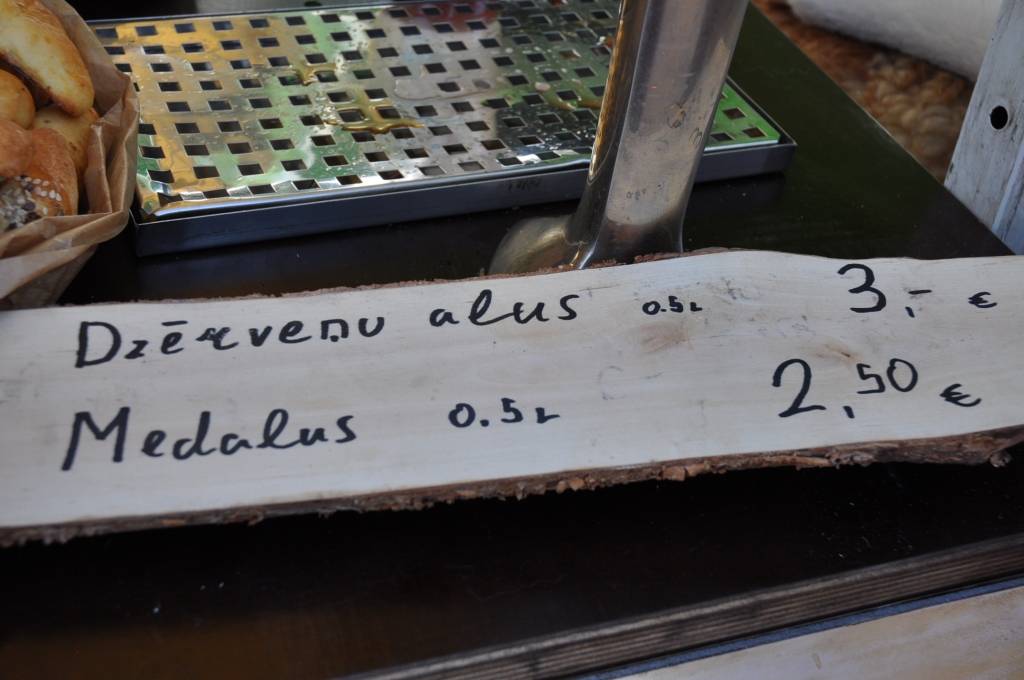 Dzērveņu alus 0.5L 3,- €
Medalus 0.5L 2,50 €